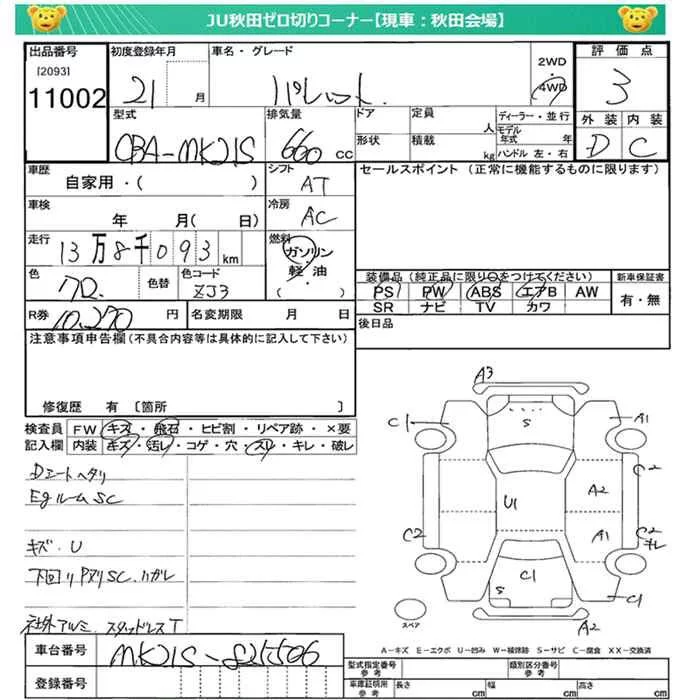 JU秋田ゼロ切りコーナー【現車：秋田会場】
出品番号 初度登録年月 車名・グレード 2WD 評価点
[2093]
11002 21 月 パレット 4WD 3
型式 排気量 ドア 定員 人 ディーラー・並行 外装 内装
CBA-MK21S 660 cc 形状 積載 kg モデル年式 年 ハンドル 左・右 D C
車歴 シフト セールスポイント (正常に機能するものに限ります)
自家用・( ) AT
車検 冷房
年 月( 日) AC
走行 燃料
13万8千093 km ガソリン
軽・油
( )
色 色替 色コード 装備品 (純正品に限り○をつけてください) 新車保証書
ZJ3 PS PW ABS エアB AW 有・無
SR ナビ TV カワ
R券 10,270 円 名変期限 月 日 後日品
注意事項申告欄(不具合内容等は具体的に記入して下さい)
修復歴 有 〔箇所 〕
検査員 FW キズ・飛石・ヒビ割・リペア跡・×要
記入欄 内装 キズ・汚レ・コゲ・穴・スレ・キレ・破レ
Dシートヘタリ
EgルームSC
キズ・U
下回リPヌリSC.ハガレ
社外アルミ.スタッドレスT
A3
C1 S A1
C2
U1 A2
C2 A1 C2
キレ
C1
S C1
A2
スペア
A-キズ E-エクボ U-凹み W-補修跡 S-サビ C-腐食 XX-交換済
車台番号 MK21S-825506
登録番号
型式指定番号 参考 類別区分番号 参考
車庫証明用 参考 長さ cm 幅 cm 高さ cm